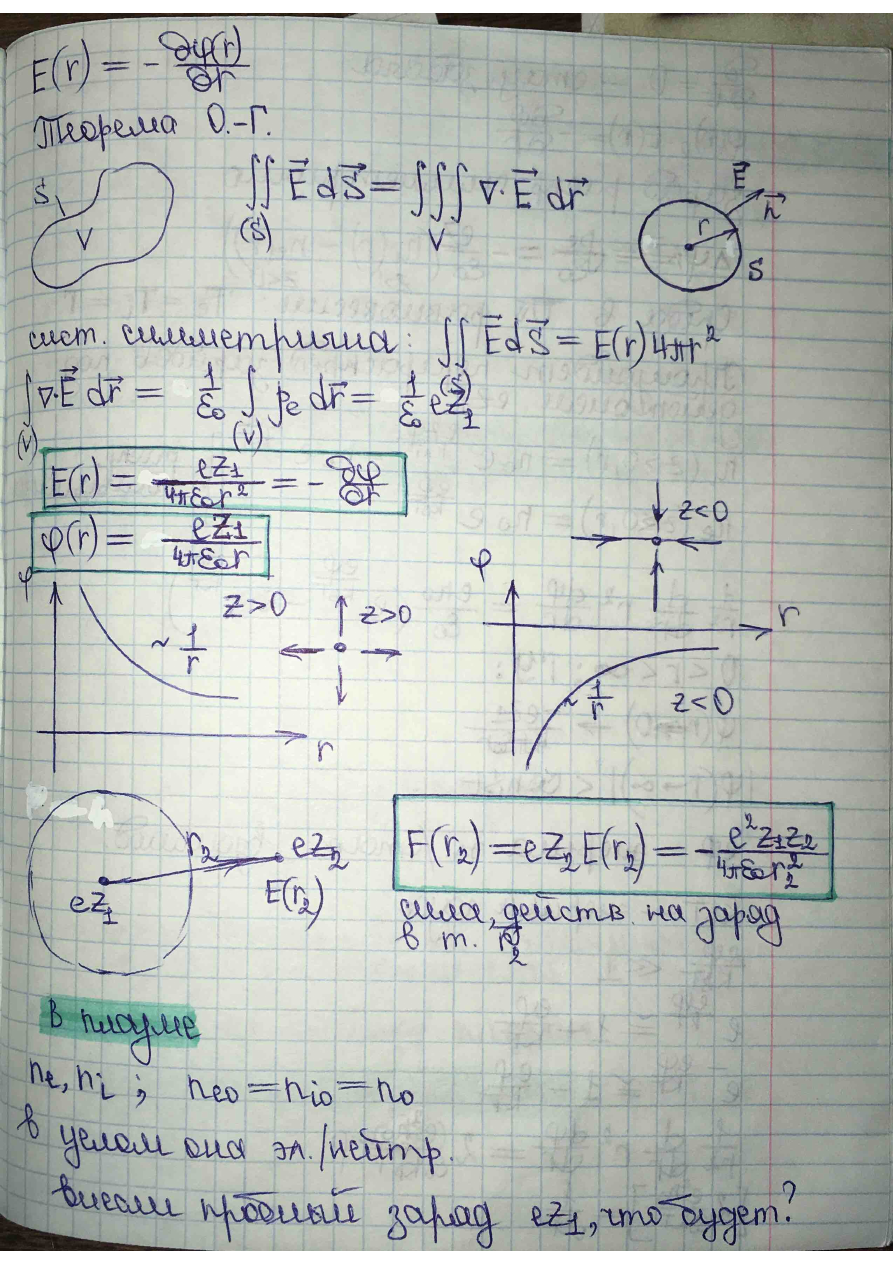 E(r) = - ∂φ(r)/∂r
Теорема О.-Г.
S
V
∬(S) E⃗ dS⃗ = ∭V ∇·E⃗ dr⃗
E⃗
n⃗
r
S
сист. симметрична: ∬(S) E⃗ dS⃗ = E(r) 4πr²
∫(V) ∇·E⃗ dr⃗ = 1/ε₀ ∫(V) ρe dr⃗ = 1/ε₀ eZ₁
E(r) = eZ₁/4πε₀r² = - ∂φ/∂r
φ(r) = eZ₁/4πε₀r
z<0
φ
z>0
~ 1/r
z>0
r
φ
r
~ 1/r
z<0
r₂
eZ₂
eZ₁
E(r₂)
F(r₂) = eZ₂E(r₂) = - e²z₁z₂/4πε₀r₂²
сила, действ. на заряд
в т. r⃗₂
в плазме
ne, ni ; ne0 = ni0 = n0
в целом она эл./нейтр.
внесли пробный заряд eZ₁, что будет?